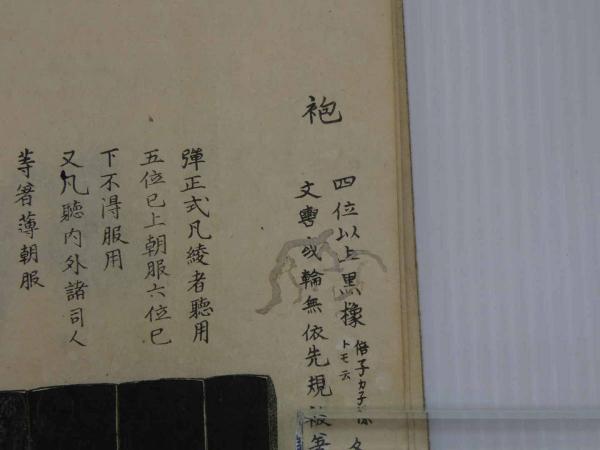 袍
四位以上黒橡
トモ云
文轡或輪無依先規
彈正式凡綾者聽用
五位已上朝服六位已
下不得服用
又凡聽内外諸司人
等著薄朝服